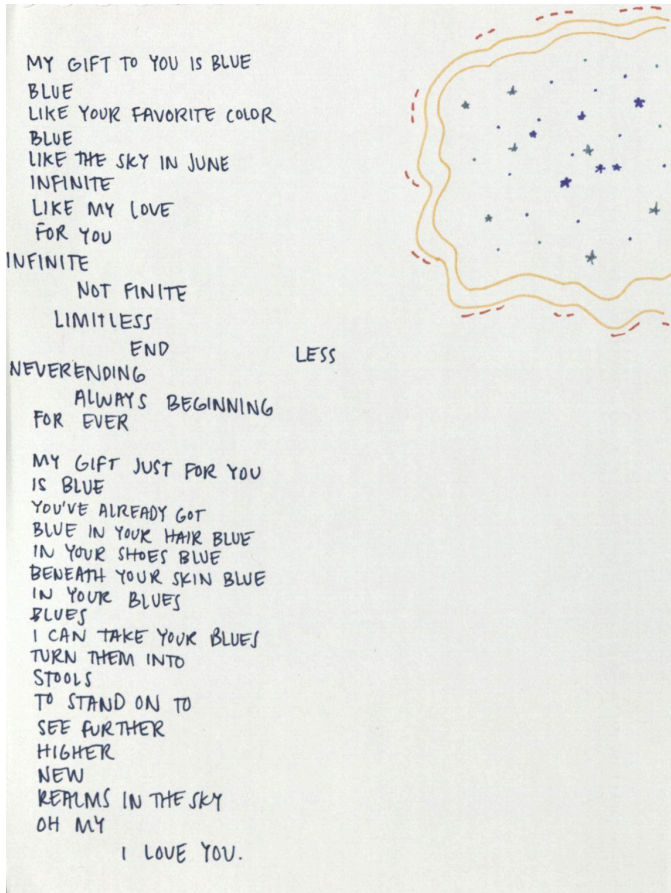 MY GIFT TO YOU IS BLUE
BLUE
LIKE YOUR FAVORITE COLOR
BLUE
LIKE THE SKY IN JUNE
INFINITE
LIKE MY LOVE
FOR YOU
INFINITE
NOT FINITE
LIMITLESS
END LESS
NEVERENDING
ALWAYS BEGINNING
FOR EVER
MY GIFT JUST FOR YOU
IS BLUE
YOU'VE ALREADY GOT
BLUE IN YOUR HAIR BLUE
IN YOUR SHOES BLUE
BENEATH YOUR SKIN BLUE
IN YOUR BLUES
BLUES
I CAN TAKE YOUR BLUES
TURN THEM INTO
STOOLS
TO STAND ON TO
SEE FURTHER
HIGHER
NEW
REALMS IN THE SKY
OH MY
I LOVE YOU.